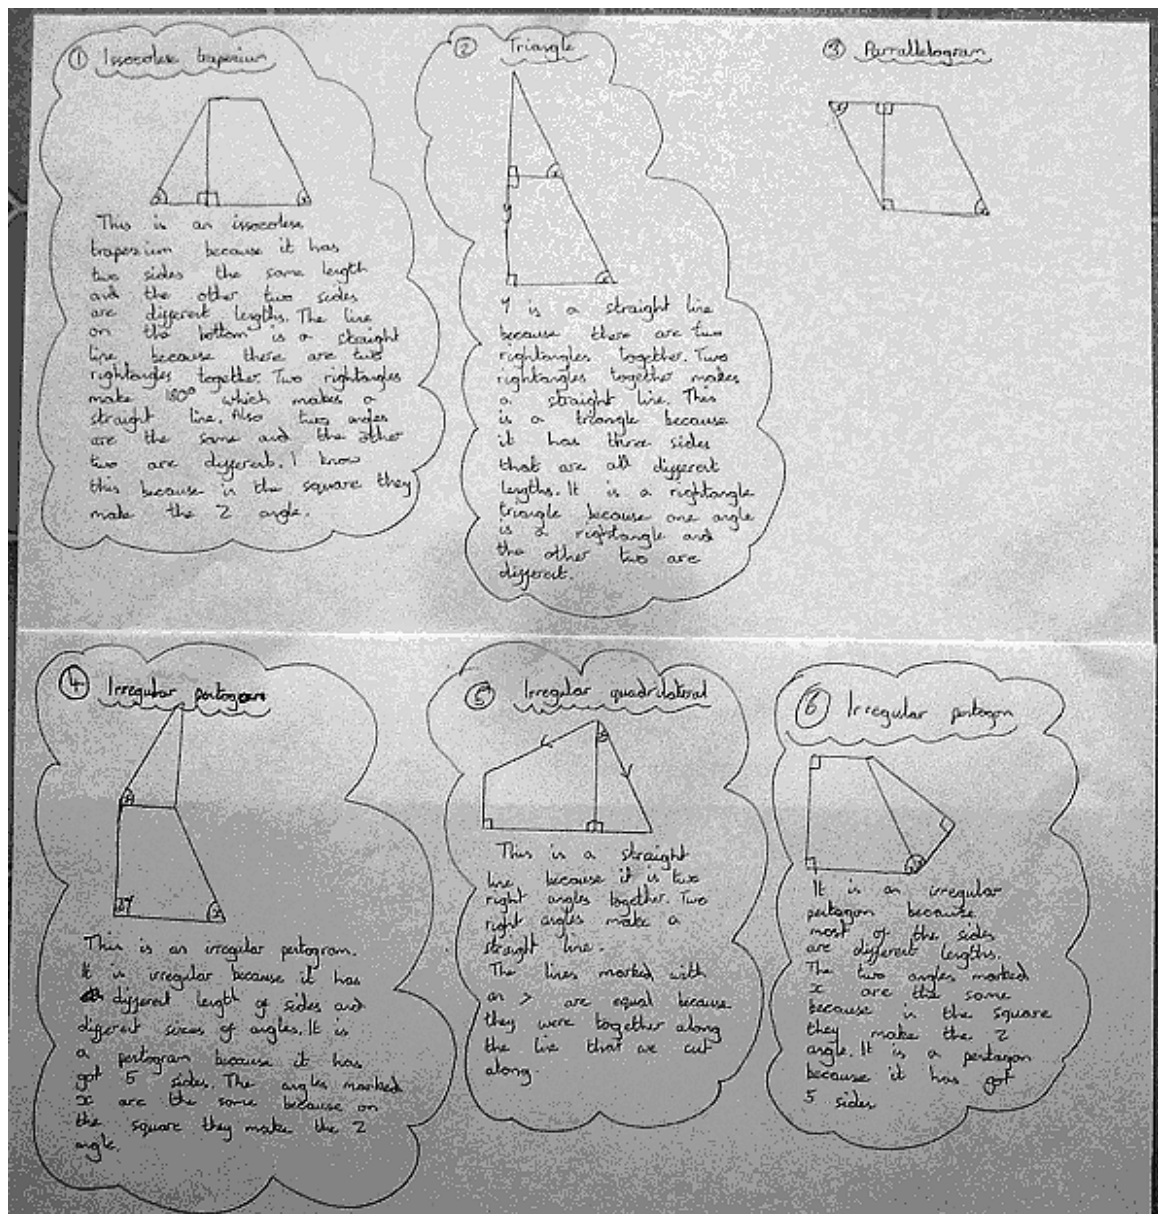 ① Issocolese traperium
This is an issocolese
traperium because it has
two sides the same length
and the other two sides
are different lengths. The line
on the bottom is a straight
line because there are two
rightangles together. Two rightangles
make 180° which makes a
straight line. Also two angles
are the same and the other
two are different. I know
this because in the square they
make the Z angle.
② Triangle
y
x
x
Y is a straight line
because there are two
rightangles together. Two
rightangles together makes
a straight line. This
is a triangle because
it has three sides
that are all different
lengths. It is a rightangle
triangle because one angle
is a rightangle and
the other two are
different.
③ Parrallelogram
④ Irregular pentogram
x
y
x
This is an irregular pentogram.
It is irregular because it has
different length of sides and
different sizes of angles. It is
a pentogram because it has
got 5 sides. The angles marked
x are the same because on
the square they make the Z
angle.
⑤ Irregular quadrilateral
This is a straight
line because it is two
right angles together. Two
right angles make a
straight line.
The lines marked with
an > are equal because
they were together along
the line that we cut
along.
⑥ Irregular pentagon
It is an irregular
pentagon because
most of the sides
are different lengths.
The two angles marked
x are the same
because in the square
they make the Z
angle. It is a pentagon
because it has got
5 sides